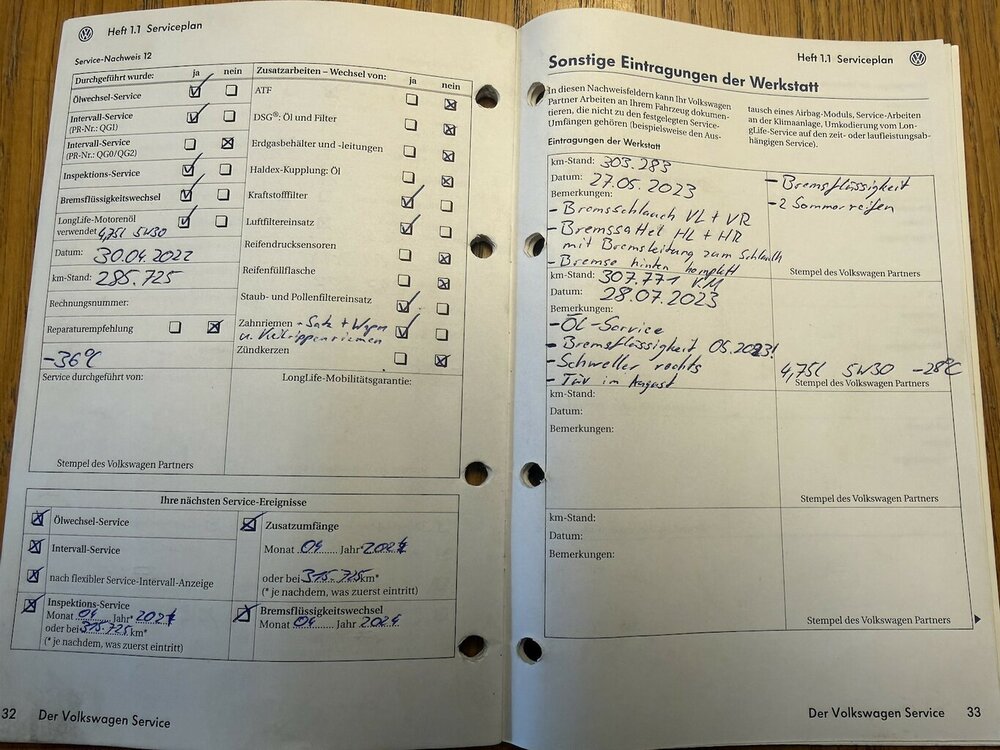 Heft 1.1 Serviceplan
Service-Nachweis 12
Durchgeführt wurde: ja nein
Ölwechsel-Service
Intervall-Service
(PR-Nr.: QG1)
Intervall-Service
(PR-Nr.: QG0/QG2)
Inspektions-Service
Bremsflüssigkeitswechsel
LongLife-Motorenöl
verwendet 4,75l 5W30
Datum: 30.04.2022
km-Stand: 285.725
Rechnungsnummer:
Reparaturempfehlung
-36°C
Service durchgeführt von:
Stempel des Volkswagen Partners
Zusatzarbeiten – Wechsel von: ja nein
ATF
DSG®: Öl und Filter
Erdgasbehälter und -leitungen
Haldex-Kupplung: Öl
Kraftstofffilter
Luftfiltereinsatz
Reifendrucksensoren
Reifenfüllflasche
Staub- und Pollenfiltereinsatz
Zahnriemen - Satz + Wapu
u. Keilrippenriemen
Zündkerzen
LongLife-Mobilitätsgarantie:
Ihre nächsten Service-Ereignisse
Ölwechsel-Service
Intervall-Service
nach flexibler Service-Intervall-Anzeige
Inspektions-Service
Monat 04 Jahr* 2024
oder bei 315.725 km*
(* je nachdem, was zuerst eintritt)
Zusatzumfänge
Monat 04 Jahr* 2024
oder bei 315.725 km*
(* je nachdem, was zuerst eintritt)
Bremsflüssigkeitswechsel
Monat 04 Jahr 2024
32 Der Volkswagen Service
Heft 1.1 Serviceplan
Sonstige Eintragungen der Werkstatt
In diesen Nachweisfeldern kann Ihr Volkswagen
Partner Arbeiten an Ihrem Fahrzeug dokumen-
tieren, die nicht zu den festgelegten Service-
Umfängen gehören (beispielsweise den Aus-
tausch eines Airbag-Moduls, Service-Arbeiten
an der Klimaanlage, Umkodierung vom Lon-
gLife-Service auf den zeit- oder laufleistungsab-
hängigen Service).
Eintragungen der Werkstatt
km-Stand: 303.283
Datum: 27.05.2023
Bemerkungen:
- Bremsschlauch VL + VR
- Bremssattel HL + HR
mit Bremsleitung zum Schlauch
- Bremse hinten komplett
- Bremsflüssigkeit
- 2 Sommerreifen
Stempel des Volkswagen Partners
km-Stand: 307.771 KM
Datum: 28.07.2023
Bemerkungen:
- Öl-Service
- Bremsflüssigkeit 05.2023!
- Schweller rechts
- Tüv im August
4,75l 5W30 -28°C
Stempel des Volkswagen Partners
km-Stand:
Datum:
Bemerkungen:
Stempel des Volkswagen Partners
km-Stand:
Datum:
Bemerkungen:
Stempel des Volkswagen Partners
Der Volkswagen Service 33